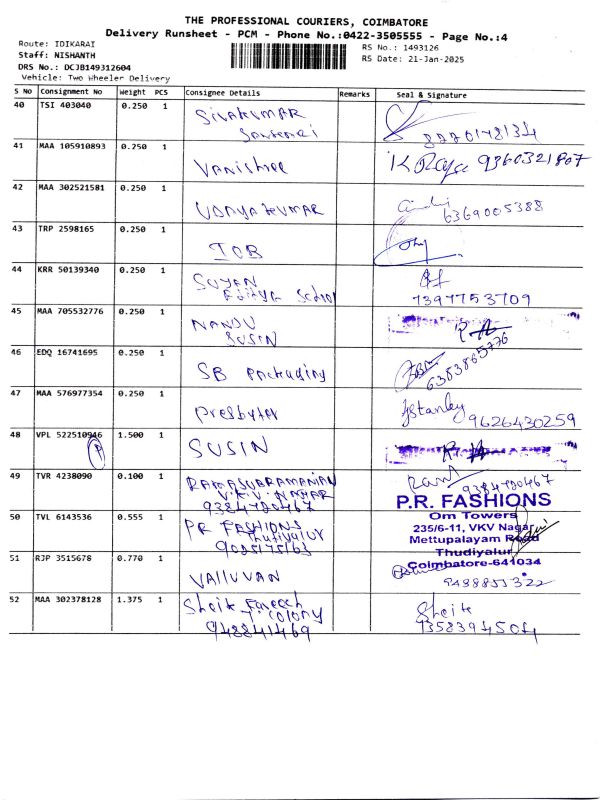 THE PROFESSIONAL COURIERS, COIMBATORE
Delivery Runsheet - PCM - Phone No.:0422-3505555 - Page No.:4
Route: IDIKARAI
RS No.: 1493126
Staff: NISHANTH
RS Date: 21-Jan-2025
DRS No.: DCJB149312604
Vehicle: Two Wheeler Delivery
S No Consignment No Weight PCS Consignee Details Remarks Seal & Signature
40 TSI 403040 0.250 1 SIVAKUMAR
8220178134
41 MAA 105910893 0.250 1 Vanishree K Raja 9360321807
42 MAA 302521581 0.250 1 UDAYAKUMAR 6369005388
43 TRP 2598165 0.250 1 IOB
44 KRR 50139340 0.250 1 SUYAN
School 7397753709
45 MAA 705532776 0.250 1 NANDU
SUSIN
46 EDQ 16741695 0.250 1 SB Packaging 6383865776
47 MAA 576977354 0.250 1 Presbyter Jstanley 9626430259
48 VPL 522510946 1.500 1 SUSIN
49 TVR 4238090 0.100 1 RAMASUBRAMANIAN Ram 9384720467
V.K.V. NAGAR
9384720467
50 TVL 6143536 0.555 1 PR FASHIONS
Thudiyalur
P.R. FASHIONS
Om Towers
235/6-11, VKV Nagar,
Mettupalayam Road
Thudiyalur
Coimbatore-641034
51 RJP 3515678 0.770 1 VALLUVAN 9488853322
52 MAA 302378128 1.375 1 Sheik Fareeth Sheik
T. colony 9358394504
948841469